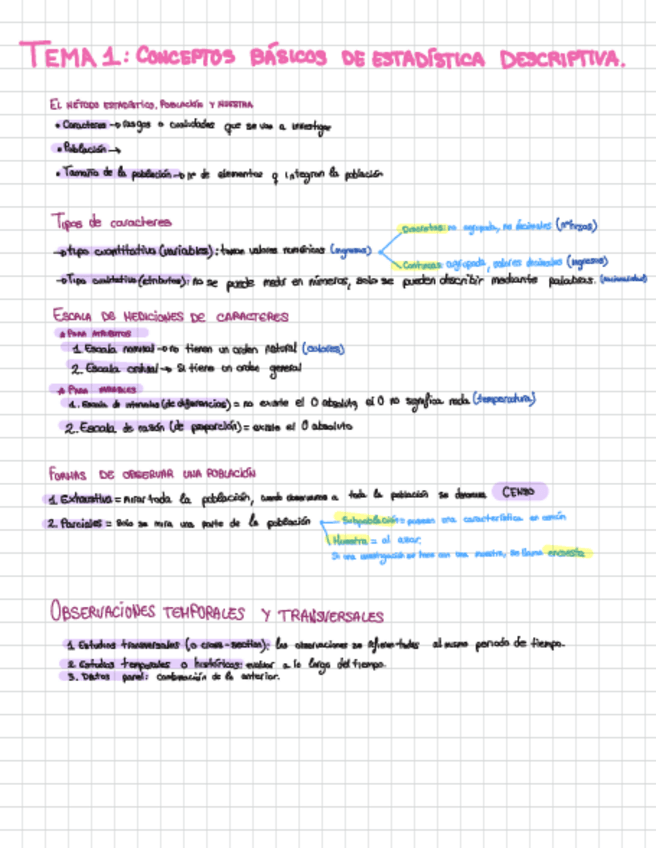 TEMA 1: CONCEPTOS BÁSICOS DE ESTADÍSTICA DESCRIPTIVA.
EL MÉTODO ESTADÍSTICO, POBLACIÓN Y MUESTRA
• Caracteres → rasgos o cualidades que se van a investigar
• Población →
• Tamaño de la población → nº de elementos q integran la población
Tipos de caracteres
→ tipo cuantitativo (variables): toman valores numéricos (ingresos)
Discretas: no agrupada, no decimales (nº hijos)
Continuas: agrupada, valores decimales (ingresos)
→ Tipo cualitativo (atributos): no se puede medir en números, solo se pueden describir mediante palabras. (nacionalidad)
ESCALA DE MEDICIONES DE CARACTERES
PARA ATRIBUTOS
1. Escala nominal → no tienen un orden natural (colores)
2. Escala ordinal → Si tiene un orden general
PARA VARIABLES
1. Escala de intervalos (de diferencias) = no existe el 0 absoluto, el 0 no significa nada (temperatura)
2. Escala de razón (de proporción) = existe el 0 absoluto
FORMAS DE OBSERVAR UNA POBLACIÓN
1. Exhaustiva = mirar toda la población, cuando observamos a toda la población se denomina CENSO
2. Parciales = Solo se mira una parte de la población
Subpoblación = poseen una característica en común
Muestra = al azar.
Si una investigación se hace con una muestra, se llama encuesta
OBSERVACIONES TEMPORALES Y TRANSVERSALES
1. Estudios transversales (o cross-section): las observaciones se refieren todas al mismo periodo de tiempo.
2. Estudios temporales o históricos: evaluar a lo largo del tiempo.
3. Datos panel: combinación de lo anterior.